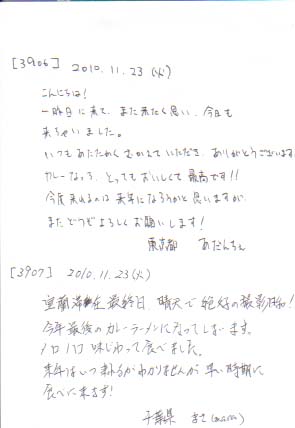 [3906] 2010.11.23(火)
こんにちは!
一昨日に来て、また来たく思い、今日も
来ちゃいました。
いつもあたたかくむかえていただき、ありがとうございます
カレーなっこ、とってもおいしくて最高です!!
今度来れるのは来年になろうかと思いますが
またどうぞよろしくお願いします!
東京都 あだんちぇ
[3907] 2010.11.23(火)
室蘭滞在最終日、晴天で絶好の撮影日和!
今年最後のカレーラーメンになってしまいます。
ハフハフ味わって食べました。
来年はいつ来れるかわかりませんが早い時期に
食べに来ます!
千葉県 まさ(masa)